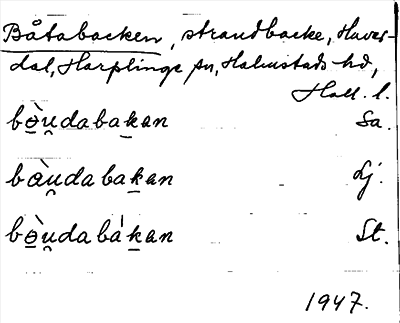 Båtabacken, strandbacke, Haver-
dal, Harplinge sn, Halmstads hd,
Hall. l.
bò̲u̯dabak̲an Sa.
bàu̯dabak̲an Lj.
bò̲u̯dabák̲an St.
1947.